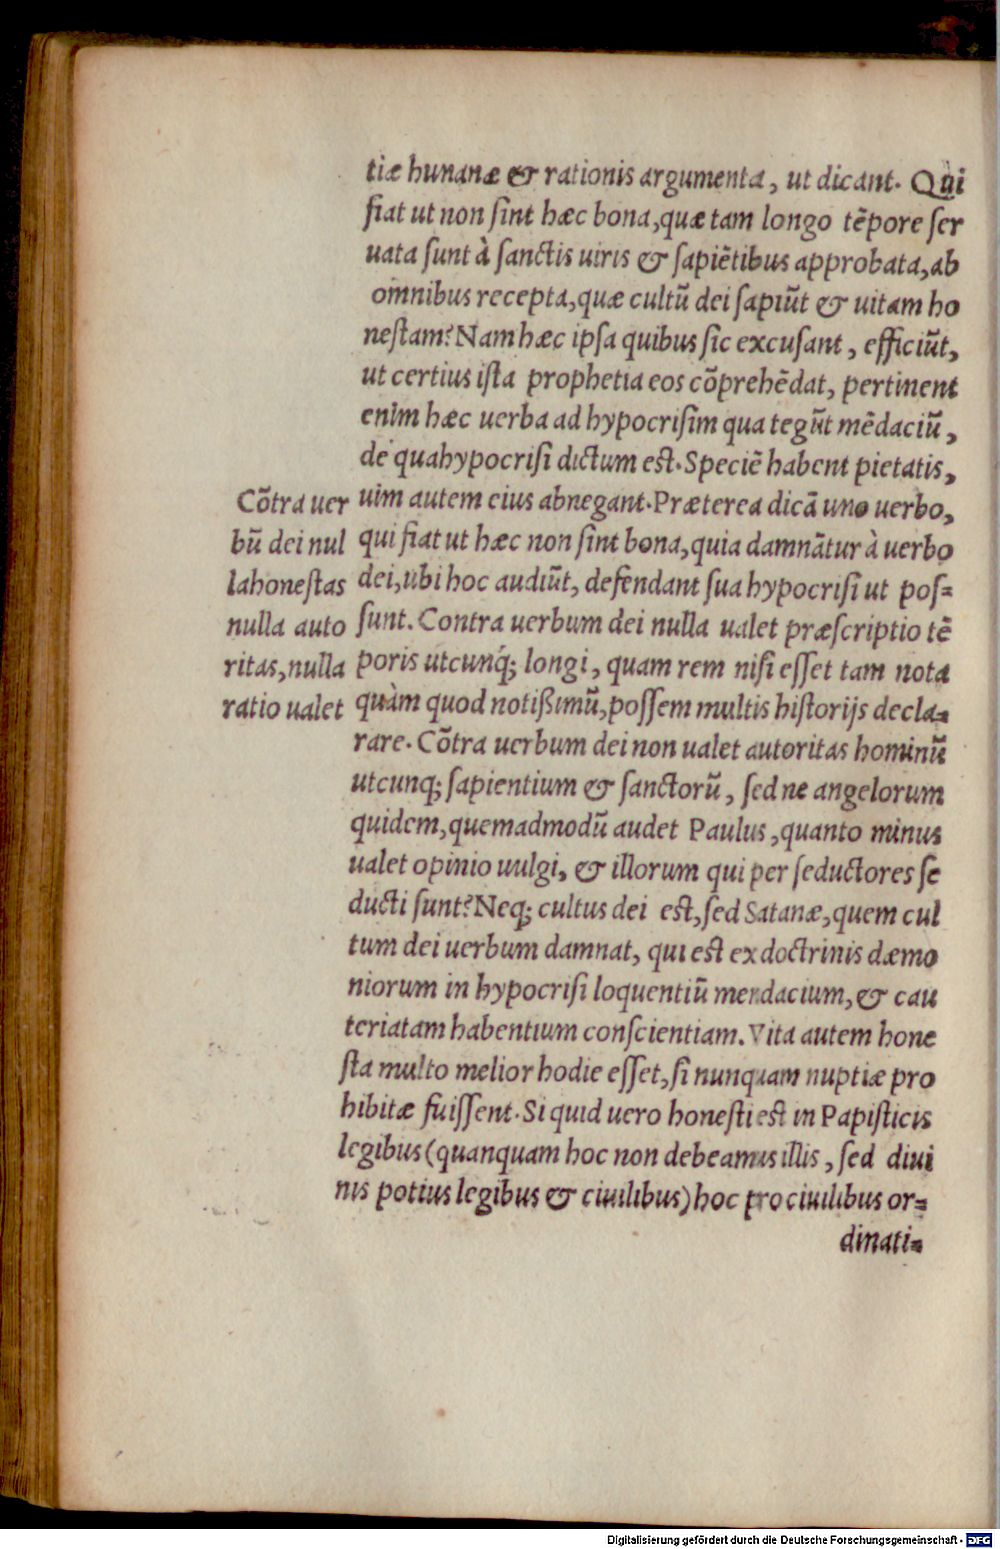 tiæ hunanæ & rationis argumenta, ut dicant. Qui
fiat ut non sint hæc bona, quæ tam longo tēpore ser
uata sunt à sanctis uiris & sapiētibus approbata, ab
omnibus recepta, quæ cultū dei sapiūt & uitam ho
nestam? Nam hæc ipsa quibus sic excusant, efficiūt,
ut certius ista prophetia eos cōprehēdat, pertinent
enim hæc uerba ad hypocrisim qua tegūt mēdaciū,
de qua hypocrisi dictum est. Speciē habent pietatis,
uim autem eius abnegant. Præterea dicā uno uerbo,
qui fiat ut hæc non sint bona, quia damnātur à uerbo
dei, ubi hoc audiūt, defendant sua hypocrisi ut pos=
sunt. Contra uerbum dei nulla ualet præscriptio tē
poris utcunq; longi, quam rem nisi esset tam nota
quàm quod notißimū, possem multis historijs decla=
rare. Cōtra uerbum dei non ualet autoritas hominū
utcunq; sapientium & sanctorū, sed ne angelorum
quidem, quemadmodū audet Paulus, quanto minus
ualet opinio uulgi, & illorum qui per seductores se
ducti sunt? Neq; cultus dei est, sed Satanæ, quem cul
tum dei uerbum damnat, qui est ex doctrinis dæmo
niorum in hypocrisi loquentiū mendacium, & cau
teriatam habentium conscientiam. Vita autem hone
sta multo melior hodie esset, si nunquam nuptiæ pro
hibitæ fuissent. Si quid uero honesti est in Papisticis
legibus (quanquam hoc non debeamus illis, sed diui
nis potius legibus & ciuilibus) hoc pro ciuilibus or=
dinati=
Cōtra uer
bū dei nul
la honestas
nulla auto
ritas, nulla
ratio ualet
Digitalisierung gefördert durch die Deutsche Forschungsgemeinschaft - DFG